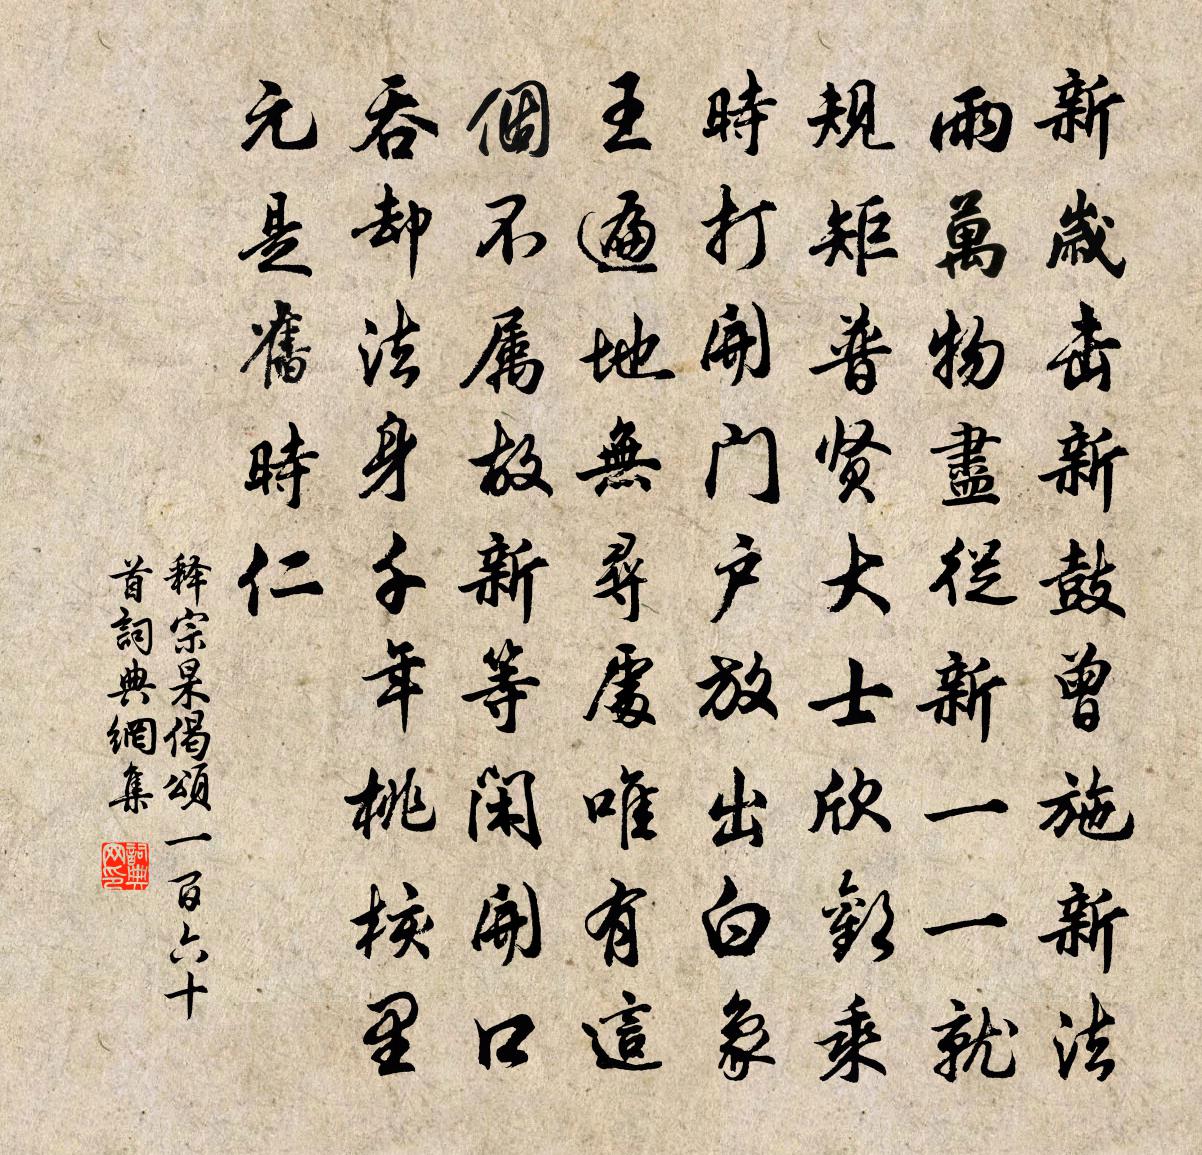 新歲击新鼓曾施新法
雨萬物盡從新一一就
規矩普贤大士欣歡乘
時打開门户放出白象
王遍地無尋處唯有這
個不属故新等閑開口
吞却法身千年桃核里
元是舊時仁
释宗杲偈頌一百六十
首詞典網集
詞典网印